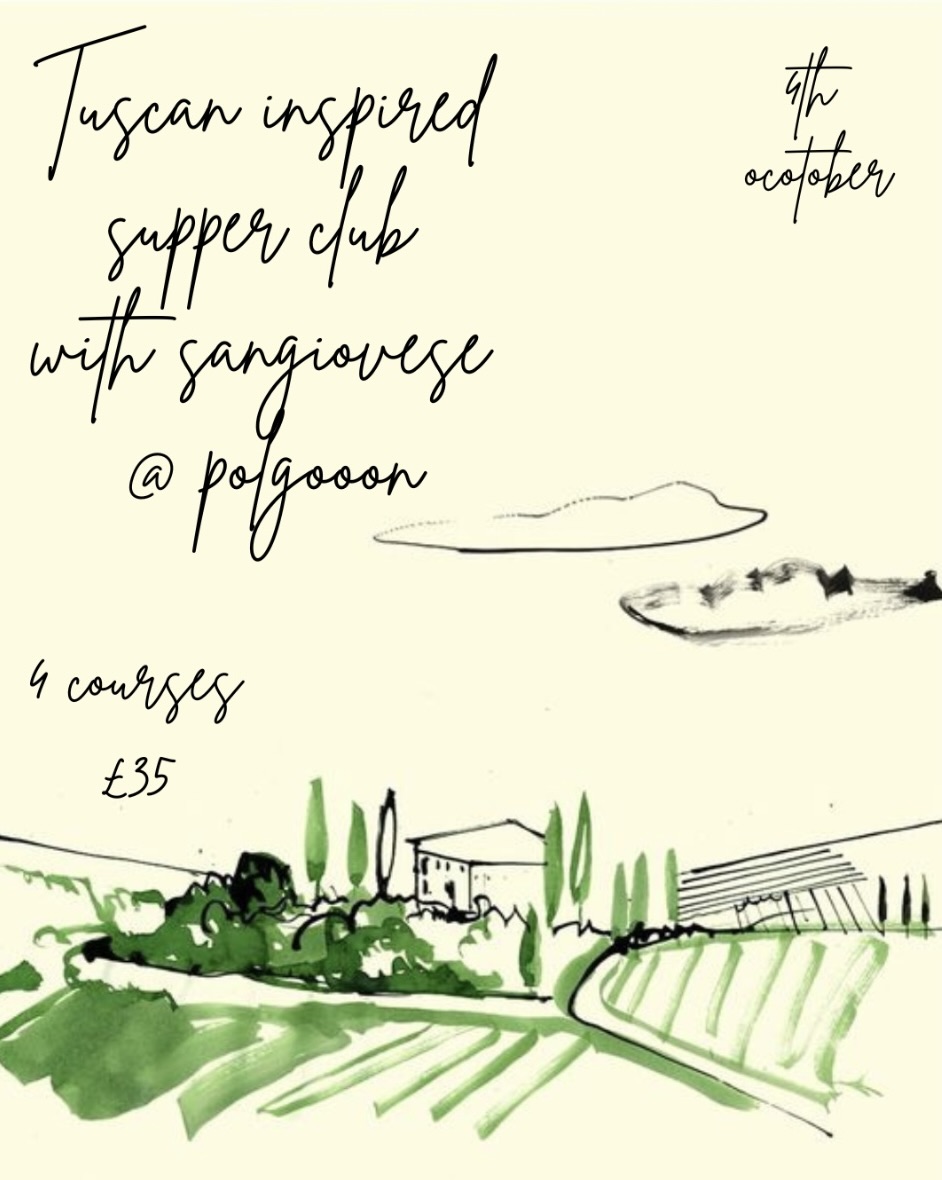 Tuscan inspired
supper club
with sangiovese
@ polgooon
4th
ocotober
4 courses
£35